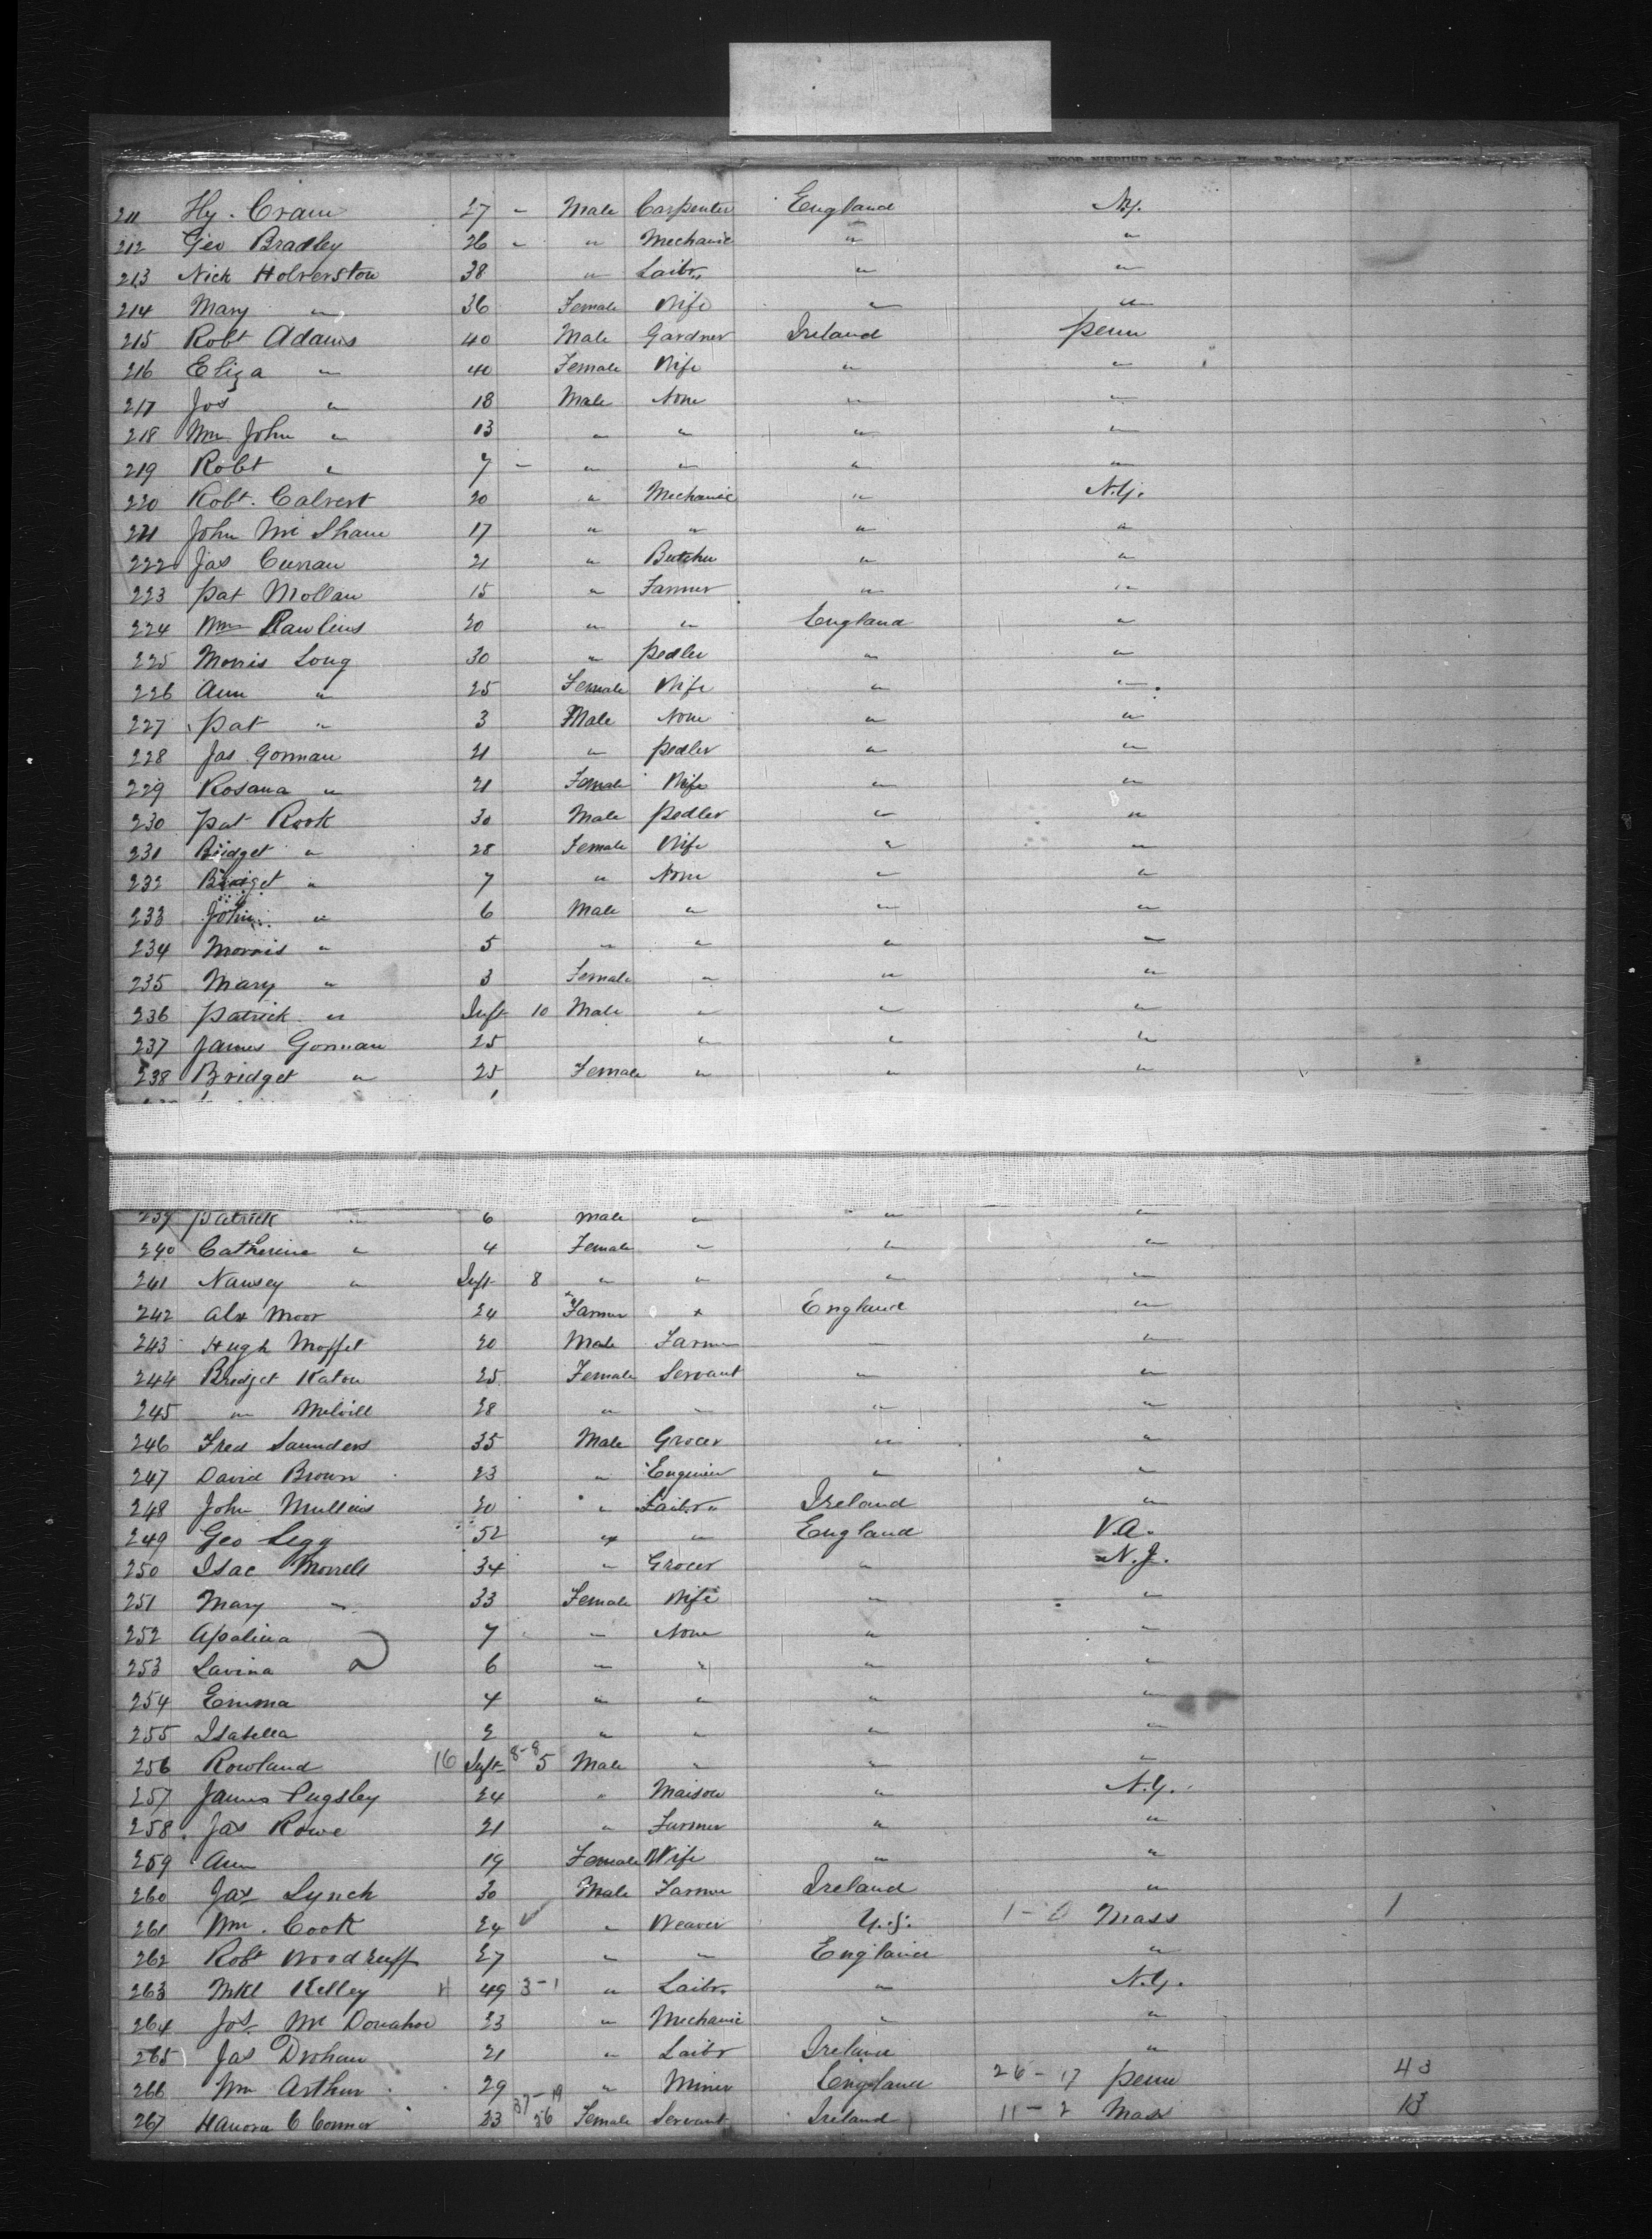 211 Hy. Cram 27 - Male Carpenter England N.y.
212 Geo Bradley 26 - " Mechanic " "
213 Nick Holverston 38 " Laibr " "
214 Mary " 36 Female Wife " "
215 Robt Adams 40 Male Gardner Ireland Penn
216 Eliza " 40 Female Wife " "
217 Jos " 18 Male None " "
218 Wm John " 13 " " " "
219 Robt " 7 - " " " "
220 Robt. Calvert 20 " Mechanic " N.Y.
221 John Mc Shane 17 " " " "
222 Jas Curran 21 " Butcher " "
223 Pat Mollan 15 " Farmer " "
224 Wm Rawlins 20 " " England "
225 Morris Long 30 " Pedler " "
226 Ann " 25 Female Wife " "
227 Pat " 3 Male None " "
228 Jas Gorman 21 " Pedler " "
229 Rosana " 21 Female Wife " "
230 Pat Rork 30 Male Pedler " "
231 Bridget " 28 Female Wife " "
232 Bridget " 7 " None " "
233 John " 6 Male " " "
234 Morris " 5 " " " "
235 Mary " 3 Female " " "
236 Patrick " Inft 10 Male " " "
237 James Gorman 25 " " "
238 Bridget " 25 Female " " "
239 Patrick " 6 Male " " "
240 Catherine " 4 Female " " "
241 Nansey " Inft 8 " " " "
242 Alx Moor 24 Farmer " England "
243 Hugh Moffet 20 Male Farmer " "
244 Bridget Katon 25 Female Servant " "
245 " Melvill 28 " " " "
246 Fred Saunders 35 Male Grocer " "
247 David Brown 23 " Enginier " "
248 John Mullins 20 " Laibr " Ireland "
249 Geo Legg 52 " " England V.A.
250 Isac Morrell 34 " Grocer " N.J.
251 Mary " 33 Female Wife " "
252 Apalina 7 " None " "
253 Lavina 6 " " " "
254 Emma 4 " " " "
255 Isabella 2 " " " "
256 Rowland 16 Inft 8-8 5 Male " " "
257 James Pugsley 24 " Maison " N.Y.
258 Jas Rowe 21 " Farmer " "
259 Ann 19 Female Wife " "
260 Jas Lynch 30 Male Farmer Ireland "
261 Wm. Cook 24 " Weaver U.S. 1-0 Mass 1
262 Robt Woodruff 27 " " England "
263 Mkl Kelley H 49 3-1 " Laibr. " N.Y.
264 Jos. Mc Donahoe 23 " Mechanic " "
265 Jas Drohan 21 " Laibr Ireland "
266 Wm Arthur 29 " Miner England 26-17 Penn 43
267 Hanora O Connor 23 37-19 56 Female Servant Ireland 11-2 Mass 13